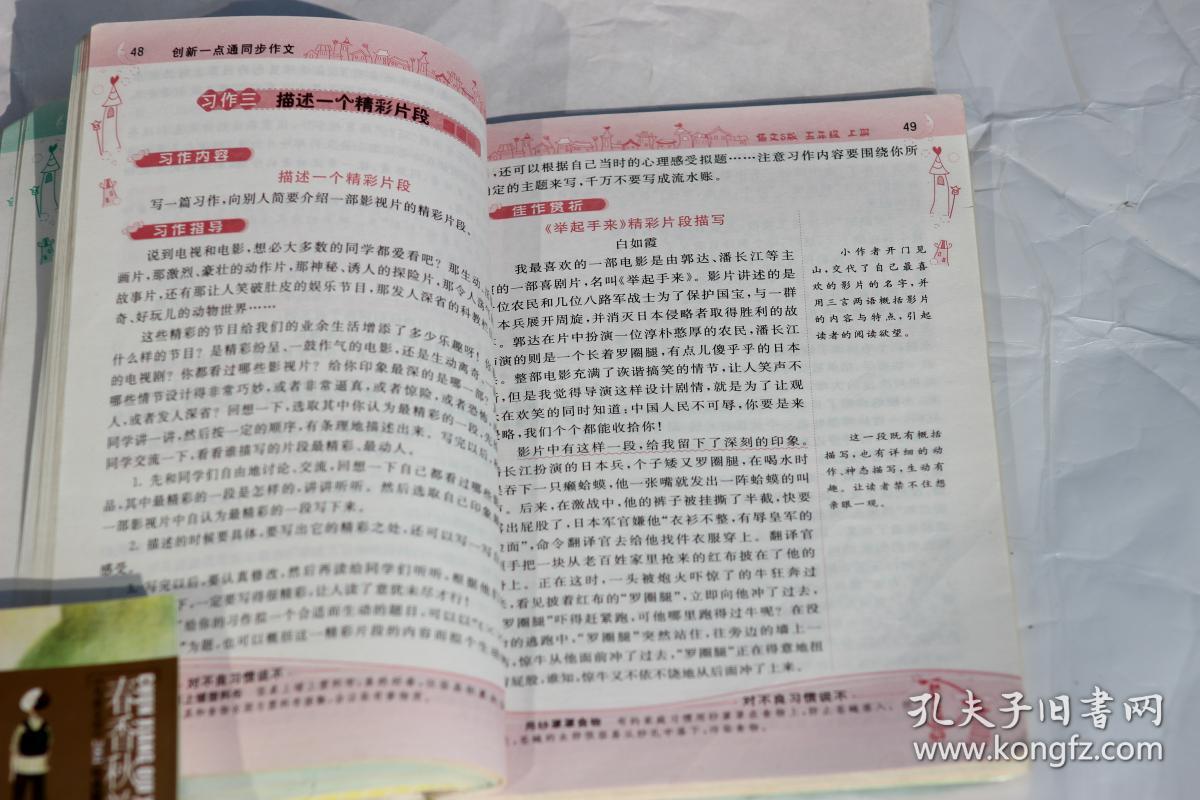 48 创新一点通同步作文
习作三 描述一个精彩片段
习作内容
描述一个精彩片段
写一篇习作,向别人简要介绍一部影视片的精彩片段。
习作指导
说到电视和电影,想必大多数的同学都爱看吧?那生动
画片,那激烈、豪壮的动作片,那神秘、诱人的探险片,那令人
故事片,还有那让人笑破肚皮的娱乐节目,那发人深省的科教
奇、好玩儿的动物世界……
这些精彩的节目给我们的业余生活增添了多少乐趣呀!
什么样的节目?是精彩纷呈、一鼓作气的电影,还是生动离奇
的电视剧?你都看过哪些影视片?给你印象最深的是哪一部?
哪些情节设计得非常巧妙,或者非常逼真,或者惊险,或者恐怖
人,或者发人深省?回想一下,选取其中你认为最精彩的一段,先
同学讲一讲,然后按一定的顺序,有条理地描述出来。写完以后,
同学交流一下,看看谁描写的片段最精彩、最动人。
1. 先和同学们自由地讨论、交流,回想一下自己都看过哪些
品,其中最精彩的一段是怎样的,讲讲听听。然后选取自己印象
一部影视片中自认为最精彩的一段写下来。
2. 描述的时候要具体,要写出它的精彩之处,还可以写一写自
感受。
写完以后,要认真修改,然后再读给同学们听听,根据他们
下,一定要写得很精彩,让人读了意犹未尽才行!
给你的习作拟一个合适而生动的题目,可以以“
”为题,也可以概括这一精彩片段的内容而拟个生动
对不良习惯说不
语文S版 五年级 上册 49
,还可以根据自己当时的心理感受拟题……注意习作内容要围绕你所
定的主题来写,千万不要写成流水账。
佳作赏析
《举起手来》精彩片段描写
白如霞
我最喜欢的一部电影是由郭达、潘长江等主
的一部喜剧片,名叫《举起手来》。影片讲述的是
位农民和几位八路军战士为了保护国宝,与一群
本兵展开周旋,并消灭日本侵略者取得胜利的故
。郭达在片中扮演一位淳朴憨厚的农民,潘长江
演的则是一个长着罗圈腿,有点儿傻乎乎的日本
。整部电影充满了诙谐搞笑的情节,让人笑声不
,但是我觉得导演这样设计剧情,就是为了让观
在欢笑的同时知道:中国人民不可辱,你要是来
略,我们个个都能收拾你!
影片中有这样一段,给我留下了深刻的印象。
长江扮演的日本兵,个子矮又罗圈腿,在喝水时
吞下一只癞蛤蟆,他一张嘴就发出一阵蛤蟆的叫
。后来,在激战中,他的裤子被挂撕了半截,快要
出屁股了,日本军官嫌他“衣衫不整,有辱皇军的
面”,命令翻译官去给他找件衣服穿上。翻译官
手把一块从老百姓家里抢来的红布披在了他的
上。正在这时,一头被炮火吓惊了的牛狂奔过
,看见披着红布的“罗圈腿”,立即向他冲了过去,
“罗圈腿”吓得赶紧跑,可他哪里跑得过牛呢?在没
的逃跑中,“罗圈腿”突然站住,往旁边的墙上一
,惊牛从他面前冲了过去,“罗圈腿”正在得意地扭
屁股,谁知,惊牛又不依不饶地从后面冲了上来。
小作者开门见
山,交代了自己最喜
欢的影片的名字,并
用三言两语概括影片
的内容与特点,引起
读者的阅读欲望。
这一段既有概括
描写,也有详细的动
作、神态描写,生动有
趣。让读者禁不住想
亲眼一观。
对不良习惯说不
用纱罩罩食物
春香秋
孔夫子旧书网
www.kongfz.com